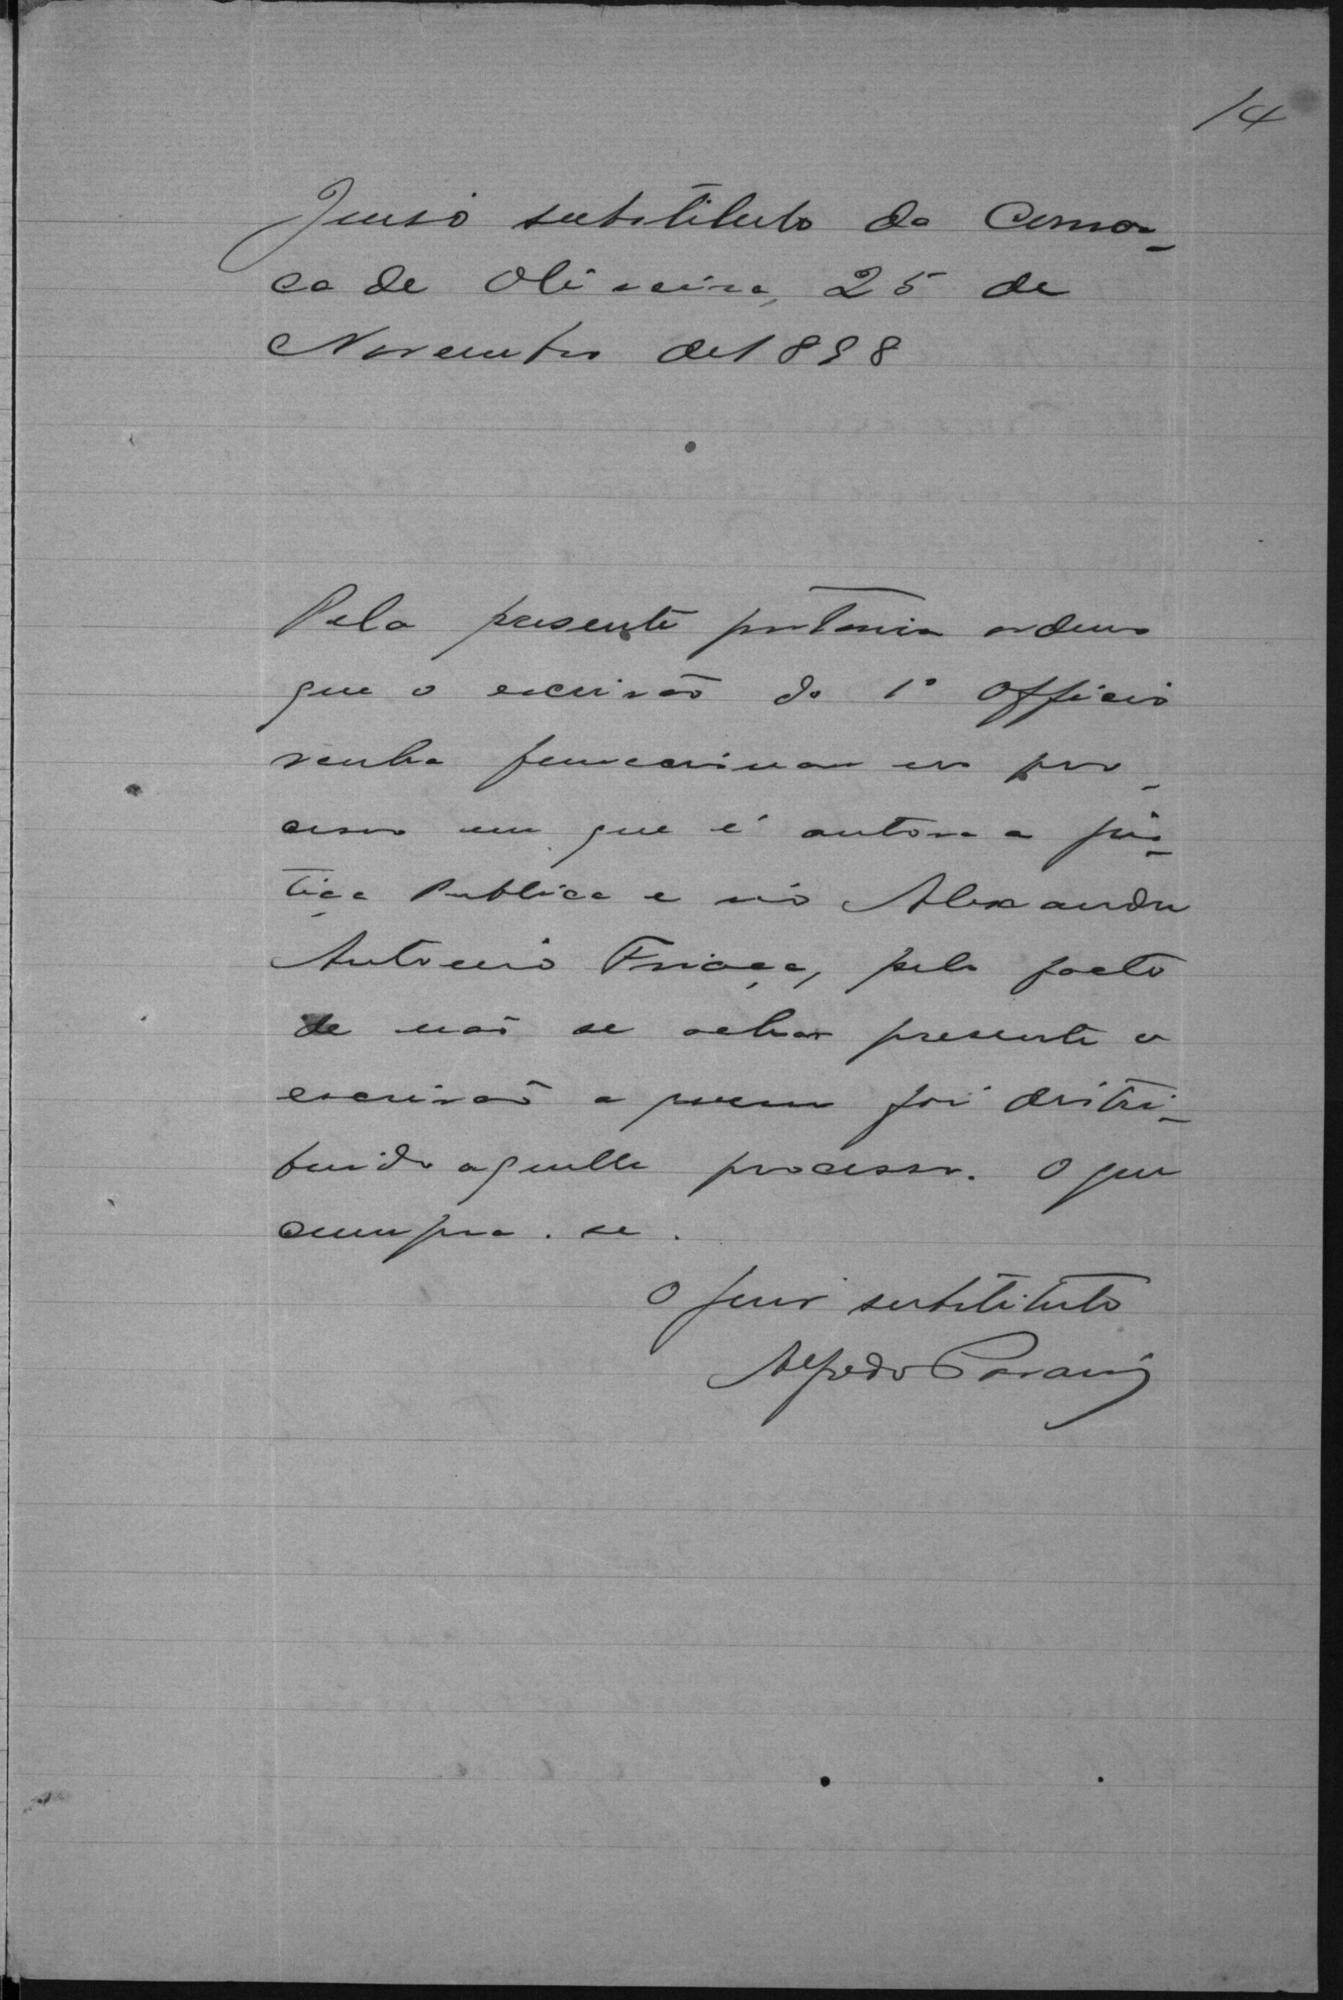 14
Juiso substituto da Comar-
ca de Oliveira, 25 de
Novembro de 1898
Pela presente portaria ordeno
que o escrivão do 1º Officio
venha funccionar no pro-
cesso em que é autora a jus-
tiça Publica e réo Alexandre
Antonio Friaça, pelo facto
de não se achar presente o
escrivão a quem foi distri-
buido aquelle processo. O que
cumpra-se.
O juiz substituto
Alfredo